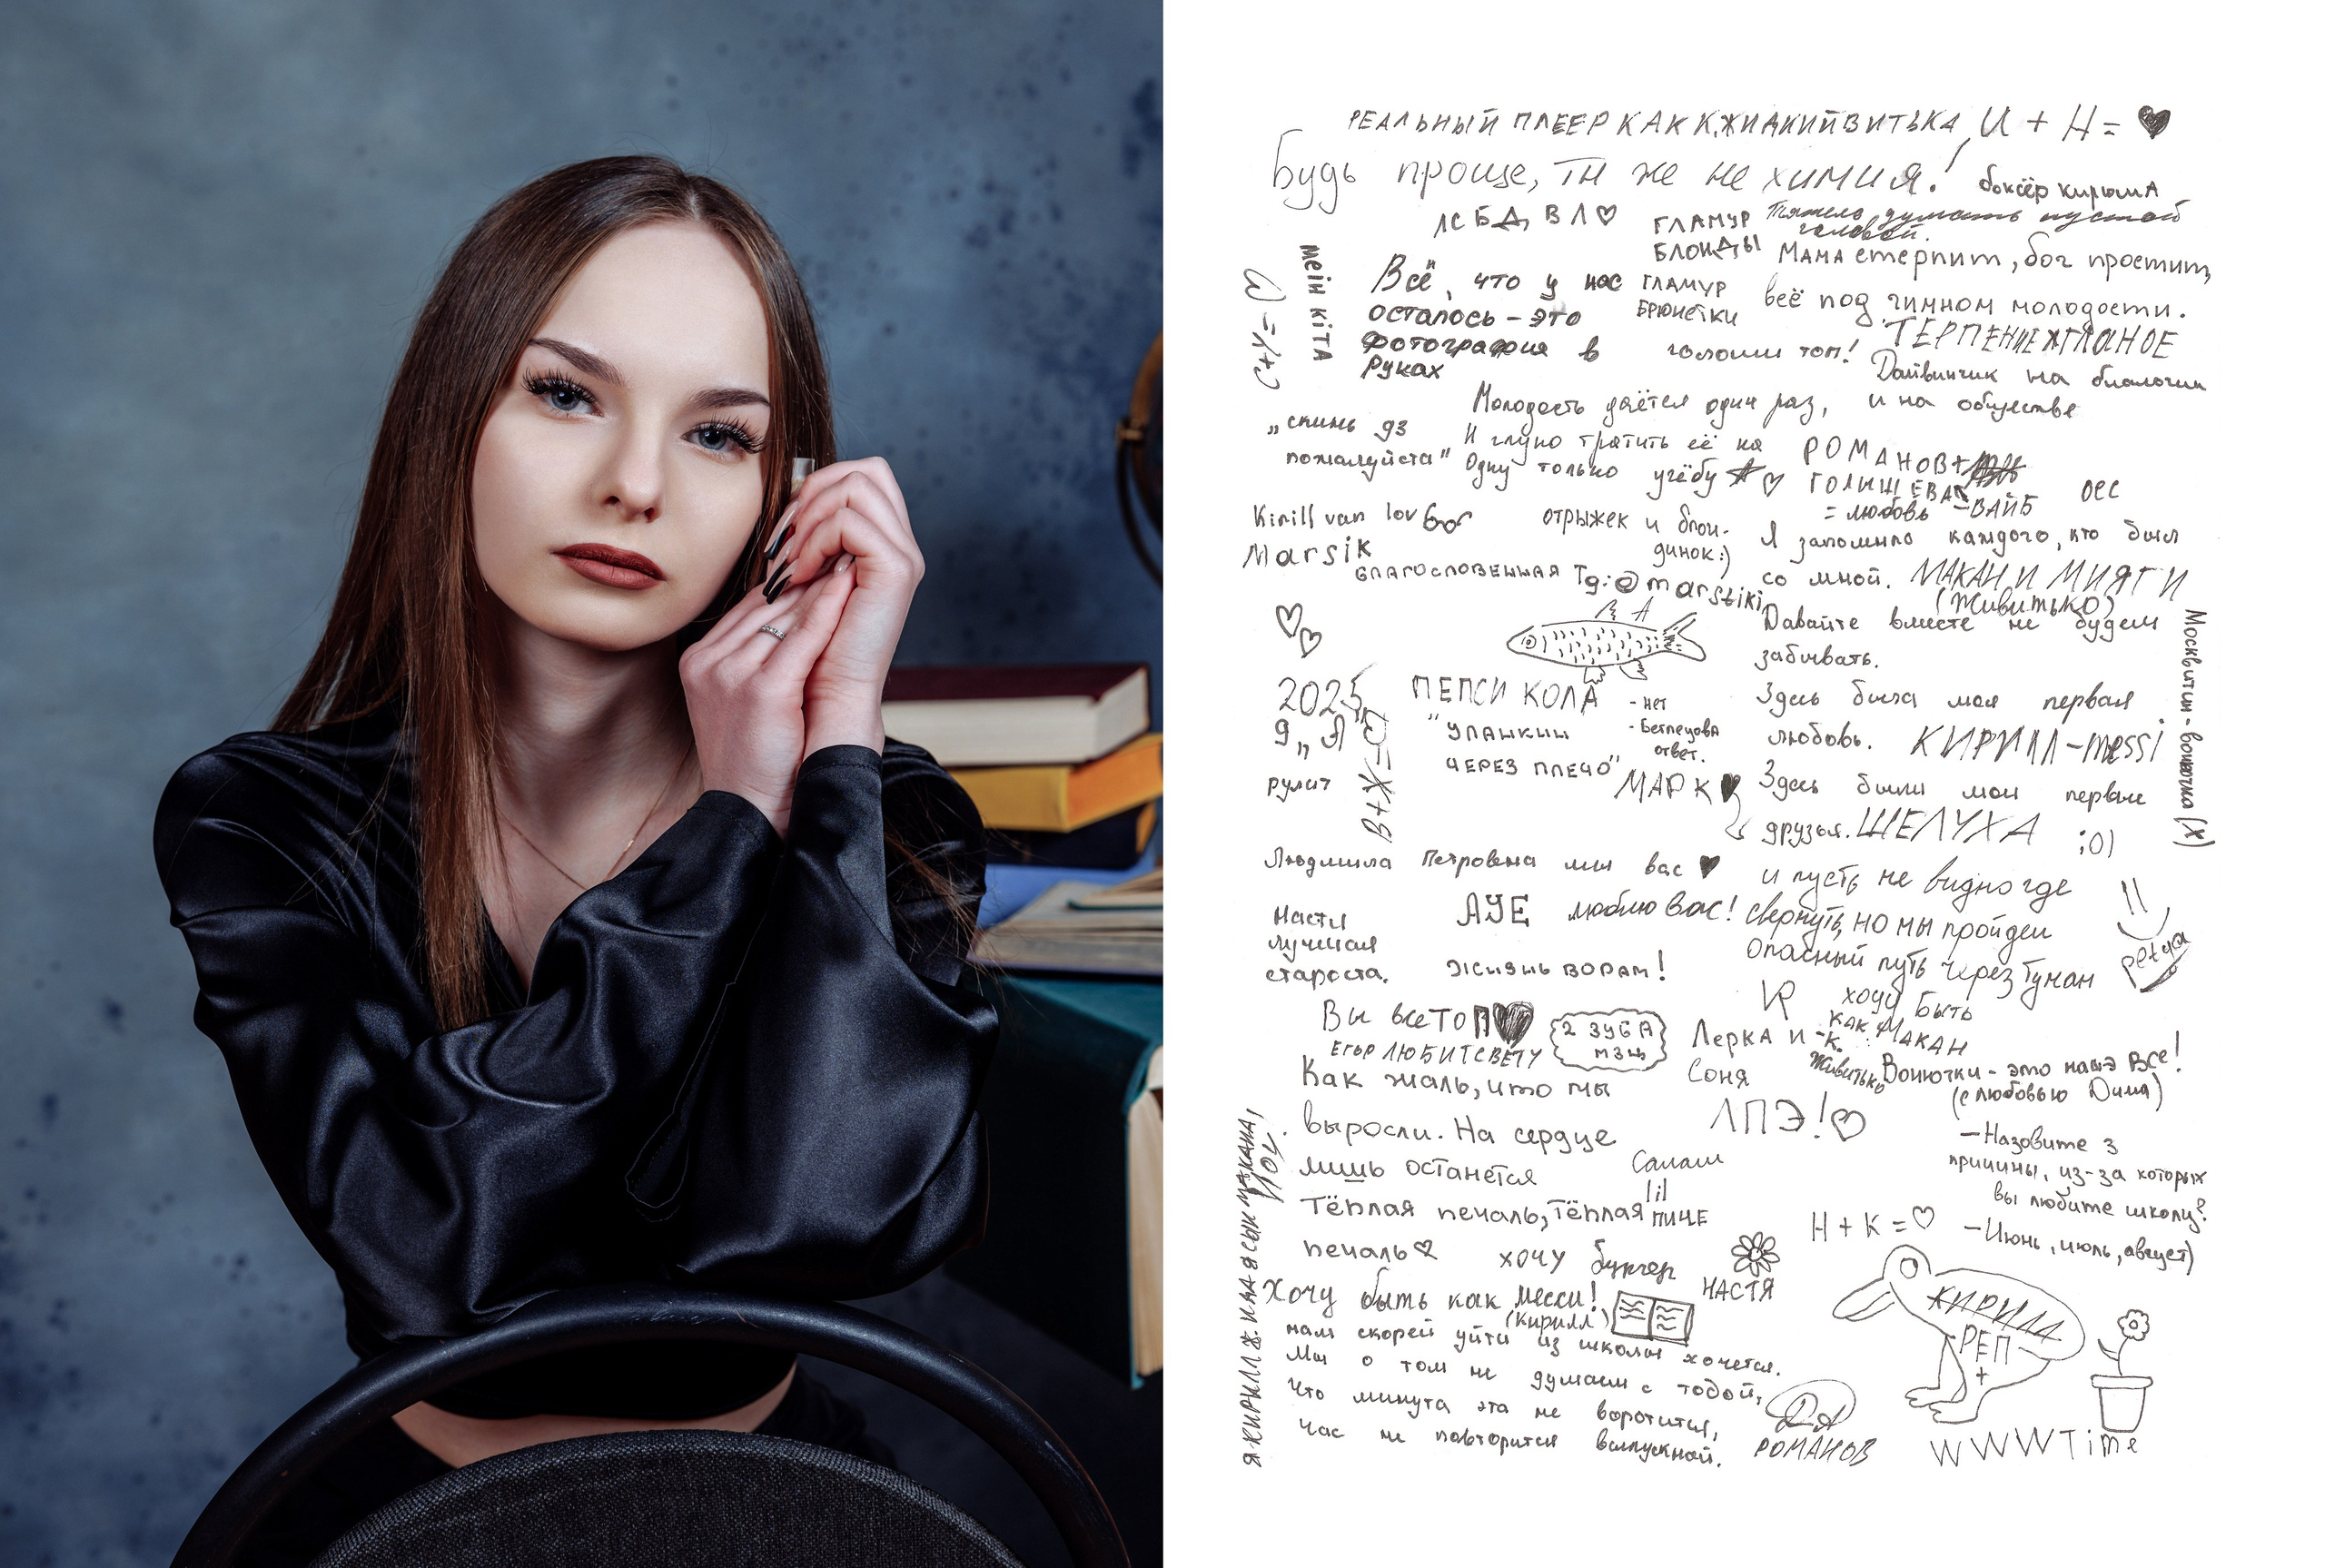 РЕАЛЬНЫЙ ПЛЕЕР КАК К.ЖИДКИЙ ВИТЬКА И + Н = ♥
Будь проще, ты же не химия!
боксёр кирюшА
ЛСБД, ВЛ♡
ГЛАМУР
БЛОНДЫ
Тяжело думать пустой
головой.
Мама стерпит, бог простит,
всё под гимном молодости.
меін кіта
Всё, что у нас
осталось – это
фотография в
руках
ГЛАМУР
БРЮНЕТКИ
голоши топ!
ТЕРПЕНИЕ ГЛАНОЕ
Дайвинчик на биологии
и на обществе
„скинь дз
пожалуйста"
Молодость даётся один раз,
И глупо тратить её на
Одну только учёбу ♡
РОМАНОВ+
ГОЛЫШЕВА
= любовь -ВАЙБ
осс
Kirill van lov
Marsik
отрыжек и блон-
динок:)
БЛАГОСЛОВЕННАЯ Tg: @marstiki
Я запомню каждого, кто был
со мной.
МАКАН И МИЯГИ
(Живитько)
Давайте вместе не будем
забывать.
Москвитин - вонючка (Х)
2025
9 „Я"
рулит
В+Ж=
ПЕПСИ КОЛА
"УПАНКИН
ЧЕРЕЗ ПЛЕЧО"
- нет
- Беглецова
ответ.
МАРК♥
Здесь была моя первая
любовь.
КИРИЛЛ-messi
Здесь были мои первые
друзья.
ШЕЛУХА
;0)
Людмила Петровна мы вас ♥
АУЕ люблю Вас!
Настя
лучшая
староста.
ЖИЗНЬ ВОРАМ!
и пусть не видно где
свернуть, но мы пройдем
опасный путь через туман
petya
Вы все ТОП♥
ЕГОР ЛЮБИТ СВЕТУ
2 ЗУБА
МЗЦ
Лерка и
Соня
ХОЧУ БЫТЬ
КАК МАКАН
-К.
Живитько
Вонючки - это наше все!
(с любовью Дима)
Как жаль, что мы
выросли. На сердце
лишь останется
тёплая печаль, тёплая
печаль♡
ЛПЭ!♡
Салам
lil
ПИЦЕ
-Назовите 3
причины, из-за которых
вы любите школу?
-Июнь, июль, август)
Н + К = ♡
хочу бургер
НАСТЯ
Хочу быть как месси!
(Кирилл)
нам скорей уйти из школы хочется.
Мы о том не думаем с тобой,
Что минута эта не воротится,
Час не повторится выпускной.
Д.А
РОМАНОВ
КИРИЛЛ
РЕП
+
WWWTime